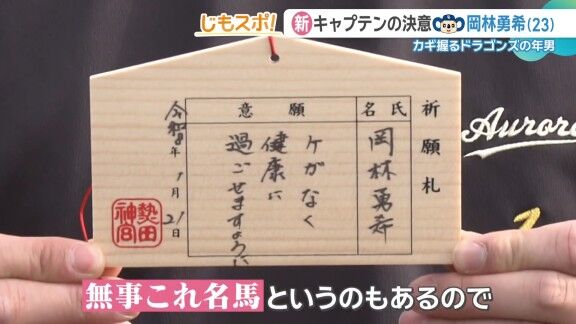 じもスポ!
新 キャプテンの決意 岡林勇希(23)
カギ握るドラゴンズの年男
祈願札
氏名
岡林勇希
願意
ケガなく
健康に
過ごせますように
令和8年1月21日
熱田神宮
Aurora
無事これ名馬というのもあるので